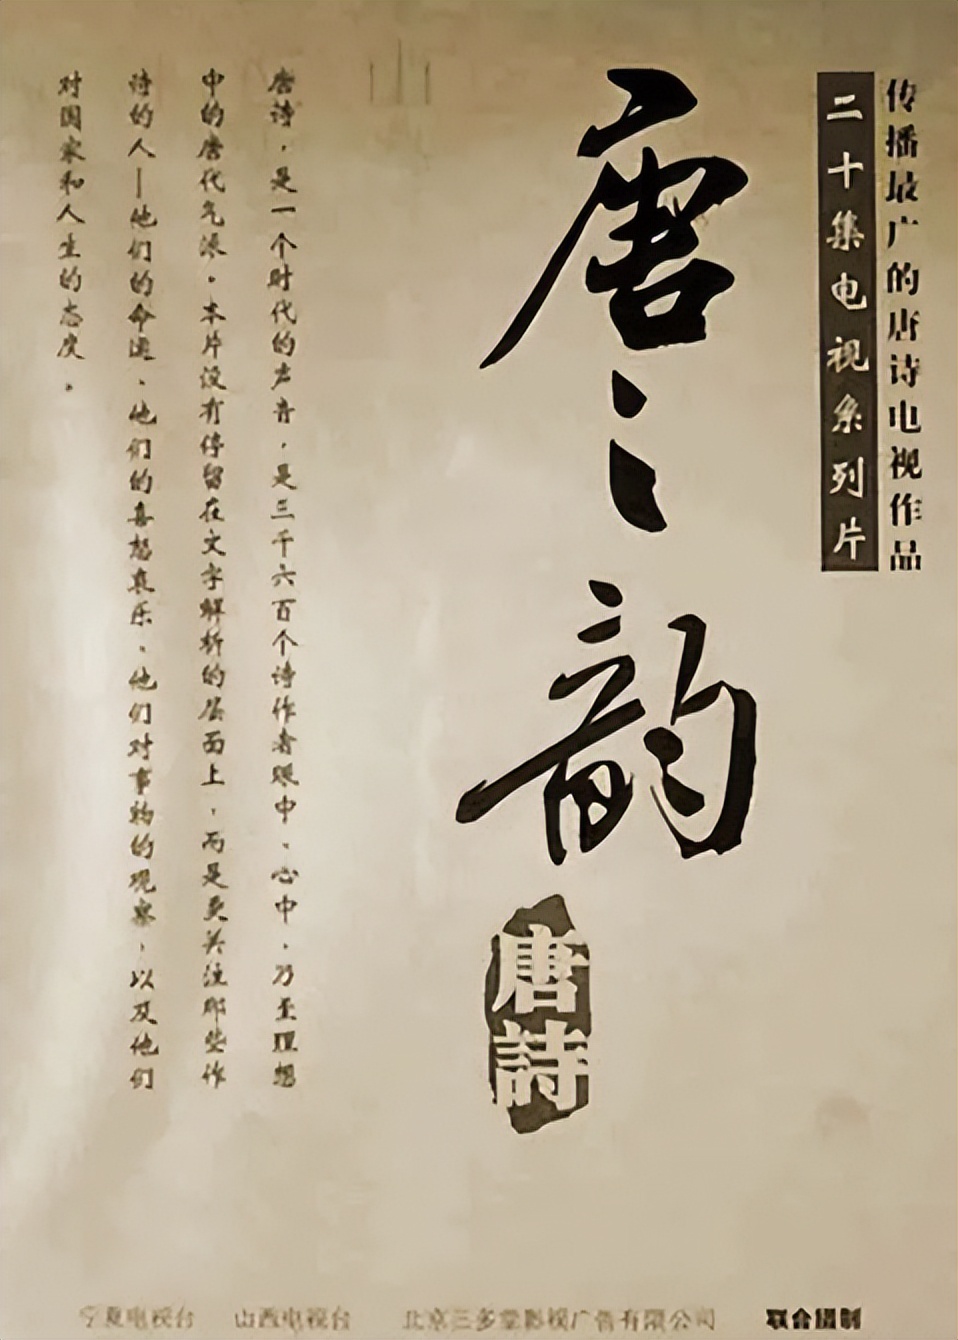 传播最广的唐诗电视作品
二十集电视系列片
唐之韵
唐詩
唐诗，是一个时代的声音，是三千六百个诗作者眼中、心中，乃至理想
中的唐代气派。本片没有停留在文字解析的层面上，而是更关注那些作
诗的人—他们的命运、他们的喜怒哀乐、他们对事物的观察，以及他们
对国家和人生的态度。
宁夏电视台 山西电视台 北京三多堂影视广告有限公司 联合摄制